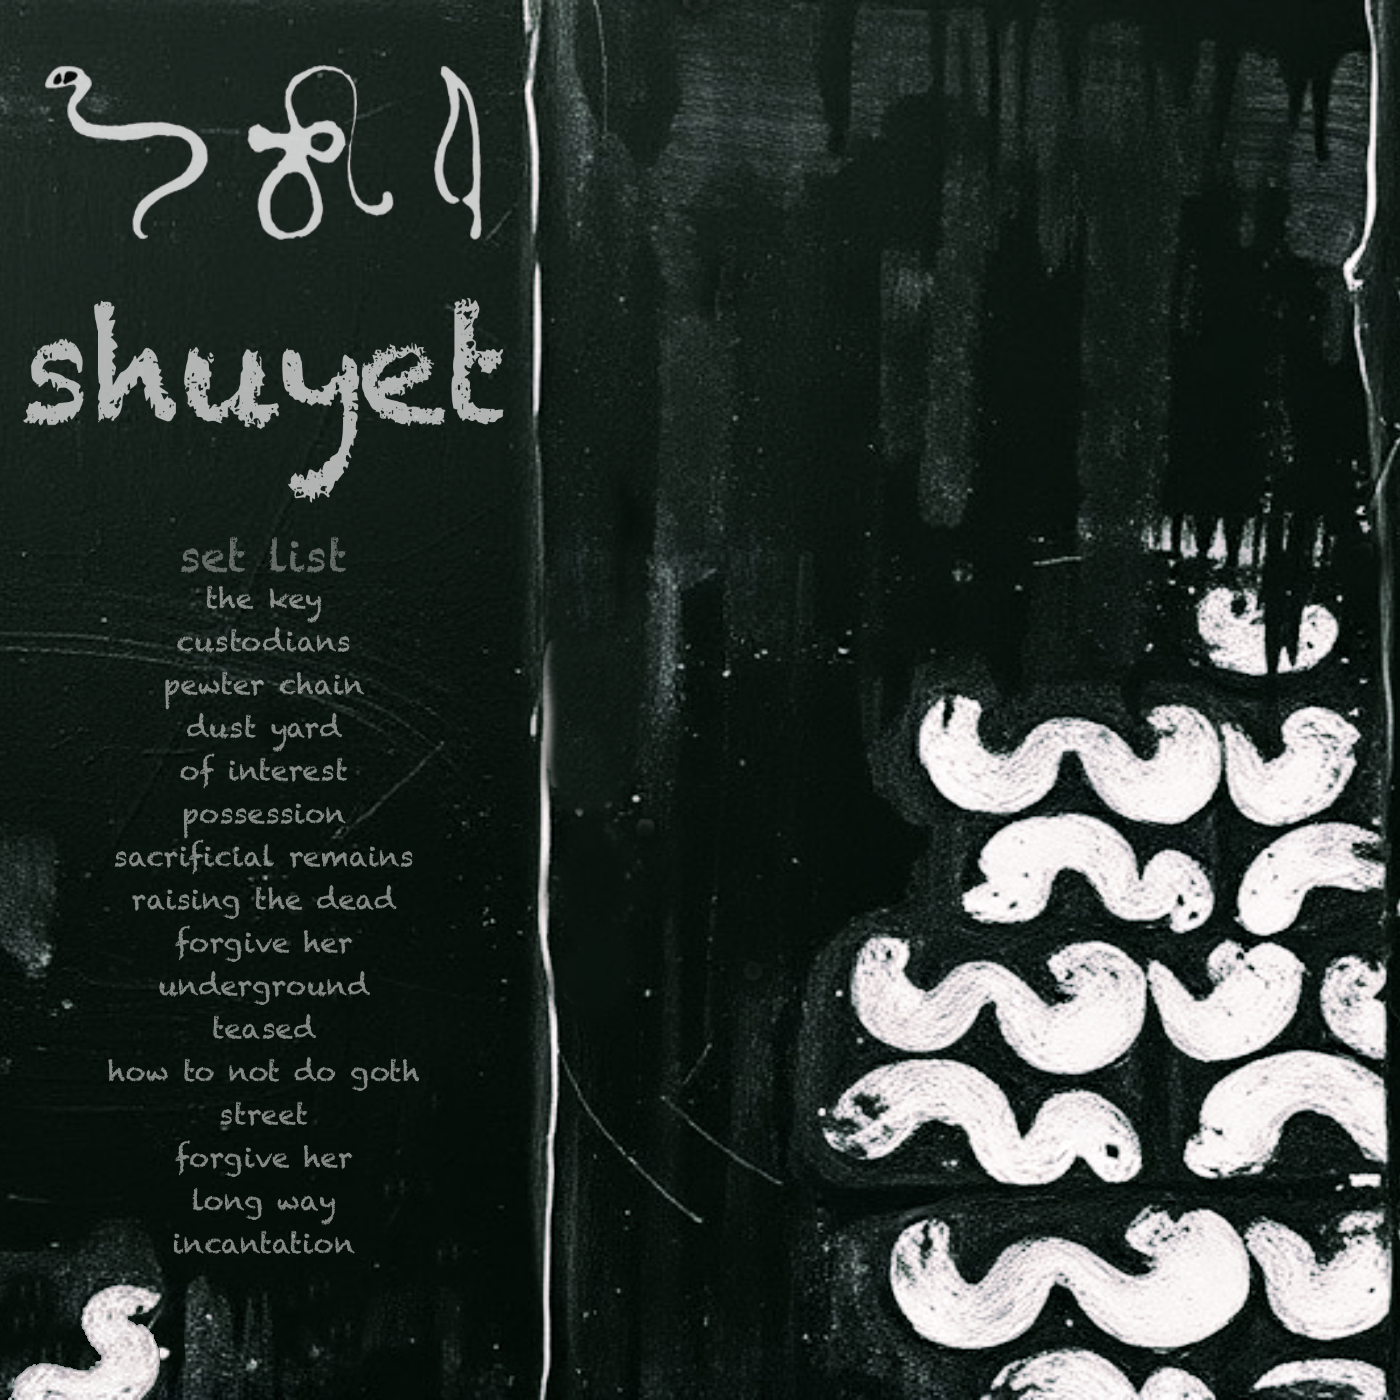 shuyet
set list
the key
custodians
pewter chain
dust yard
of interest
possession
sacrificial remains
raising the dead
forgive her
underground
teased
how to not do goth
street
forgive her
long way
incantation